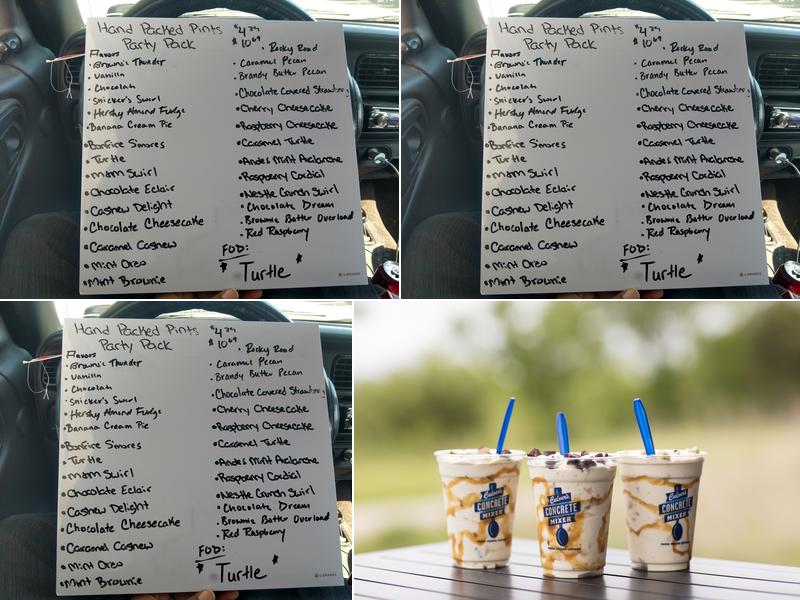 Hand Packed Pints $4.29
Party Pack $10.69
Flavors
• Brown's Thunder
• Vanilla
• Chocolate
• Snicker's Swirl
• Hershy Almond Fudge
• Banana Cream Pie
• Bonfire S'mores
• Turtle
• M&M Swirl
• Chocolate Eclair
• Cashew Delight
• Chocolate Cheesecake
• Caramel Cashew
• Mint Oreo
• Mint Brownie
• Rocky Road
• Caramel Pecan
• Brandy Butter Pecan
• Chocolate Covered Strawberry
• Cherry Cheesecake
• Raspberry Cheesecake
• Caramel Turtle
• Andes Mint Avalanche
• Raspberry Cordial
• Nestle Crunch Swirl
• Chocolate Dream
• Brownie Batter Overload
• Red Raspberry
FOD:
* Turtle *
U BRANDS
Hand Packed Pints $4.29
Party Pack $10.69
Flavors
• Brown's Thunder
• Vanilla
• Chocolate
• Snicker's Swirl
• Hershy Almond Fudge
• Banana Cream Pie
• Bonfire S'mores
• Turtle
• M&M Swirl
• Chocolate Eclair
• Cashew Delight
• Chocolate Cheesecake
• Caramel Cashew
• Mint Oreo
• Mint Brownie
• Rocky Road
• Caramel Pecan
• Brandy Butter Pecan
• Chocolate Covered Strawberry
• Cherry Cheesecake
• Raspberry Cheesecake
• Caramel Turtle
• Andes Mint Avalanche
• Raspberry Cordial
• Nestle Crunch Swirl
• Chocolate Dream
• Brownie Batter Overload
• Red Raspberry
FOD:
* Turtle *
U BRANDS
Hand Packed Pints $4.29
Party Pack $10.69
Flavors
• Brown's Thunder
• Vanilla
• Chocolate
• Snicker's Swirl
• Hershy Almond Fudge
• Banana Cream Pie
• Bonfire S'mores
• Turtle
• M&M Swirl
• Chocolate Eclair
• Cashew Delight
• Chocolate Cheesecake
• Caramel Cashew
• Mint Oreo
• Mint Brownie
• Rocky Road
• Caramel Pecan
• Brandy Butter Pecan
• Chocolate Covered Strawberry
• Cherry Cheesecake
• Raspberry Cheesecake
• Caramel Turtle
• Andes Mint Avalanche
• Raspberry Cordial
• Nestle Crunch Swirl
• Chocolate Dream
• Brownie Batter Overload
• Red Raspberry
FOD:
* Turtle *
U BRANDS
Culver's
CONCRETE
MIXER
Culver's
CONCRETE
MIXER
Culver's
CONCRETE
MIXER